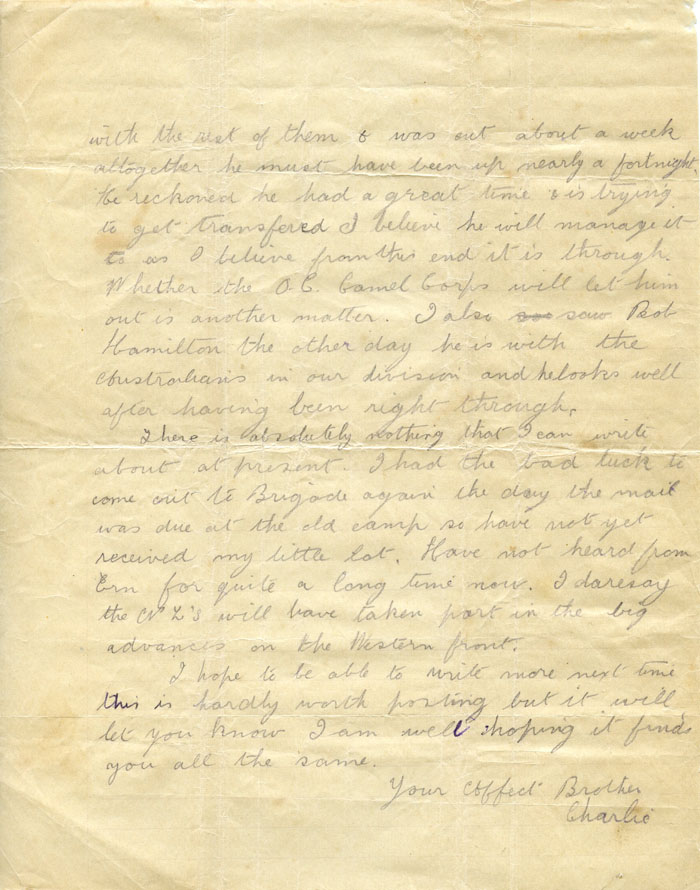 with the rest of them & was out about a week
altogether he must have been up nearly a fortnight.
He reckoned he had a great time & is trying
to get transfered I believe he will manage it
to as I believe from this end it is through.
Whether the O.C. Camel Corps will let him
out is another matter. I also saw Bob
Hamilton the other day he is with the
Australians in our division and he looks well
after having been right through.
There is absolutely nothing that I can write
about at present. I had the bad luck to
come out to Brigade again the day the mail
was due at the old camp so have not yet
received my little lot. Have not heard from
Ern for quite a long time now. I daresay
the NZ's will have taken part in the big
advances on the Western front.
I hope to be able to write more next time
this is hardly worth posting but it will
let you know I am well & hoping it finds
you all the same.
Your Affect Brother
Charlie